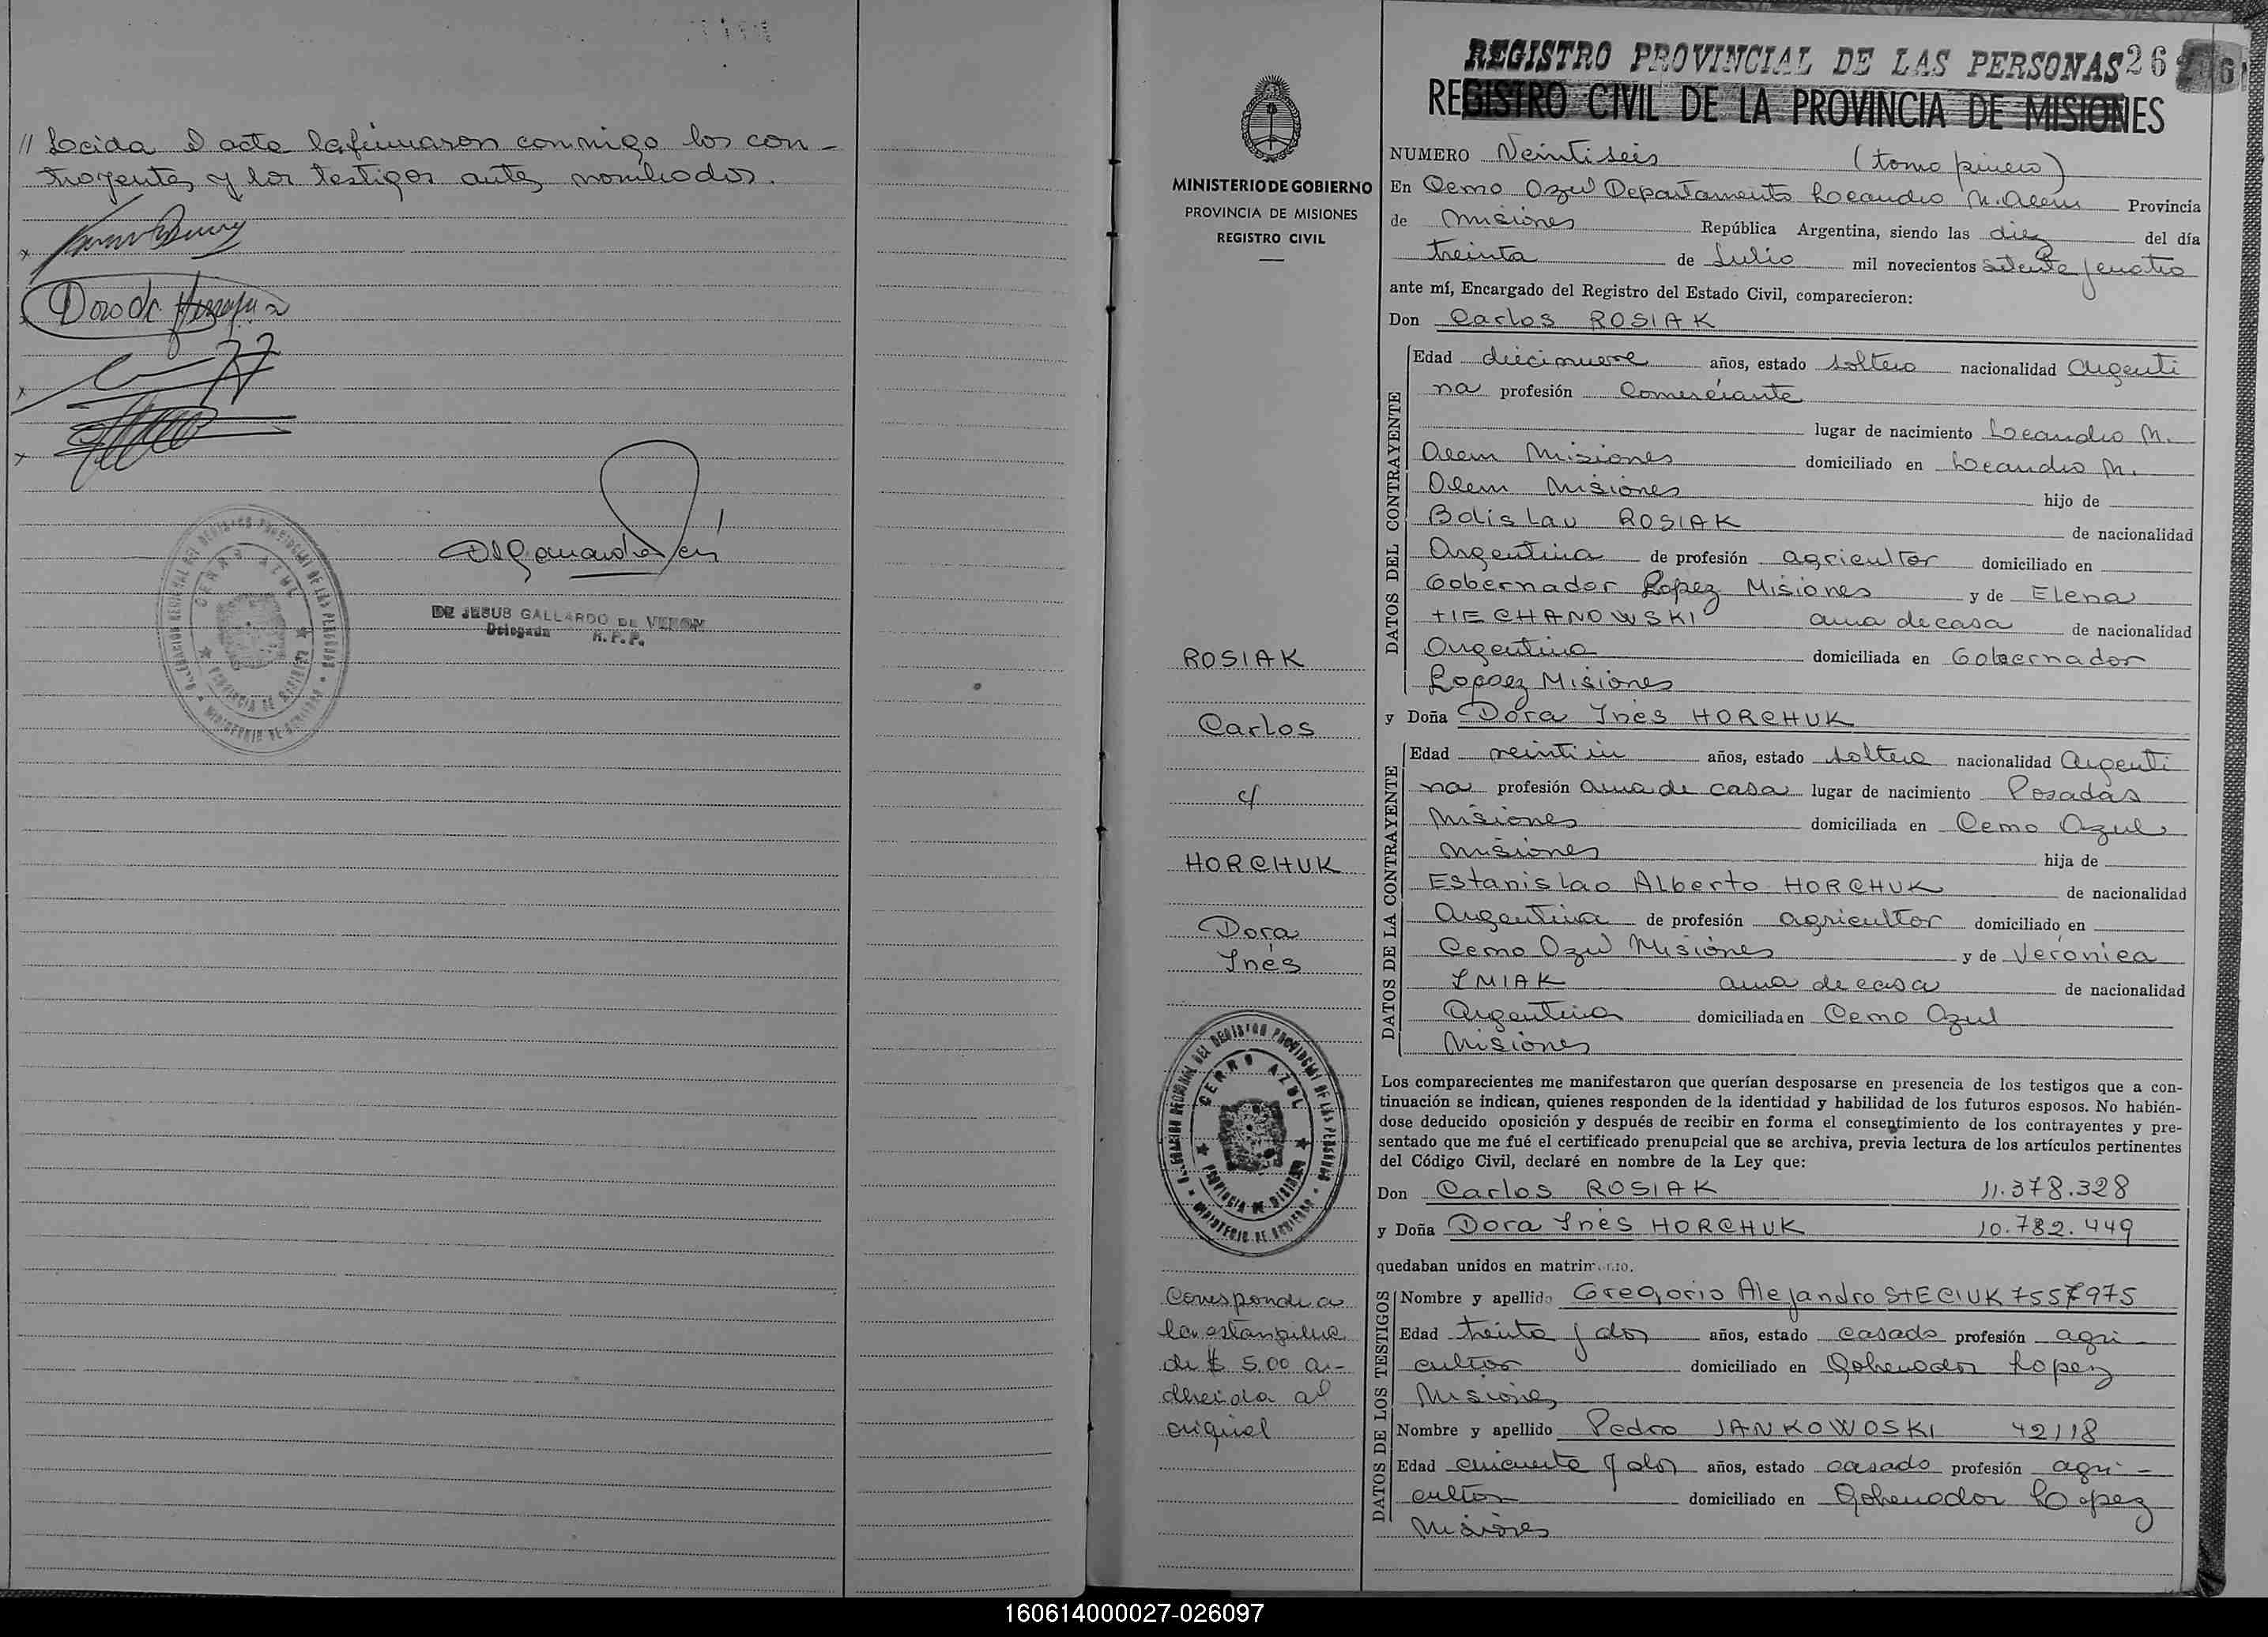 // Leeida el acta la firmaron conmigo los con-
trayentes y los testigos antes nombrados.
Dora de
DE JESUS GALLARDO DE VERON
Delegada R.P.P.
CERRO AZUL
PROVINCIA DE MISIONES
REGISTRO PROVINCIAL DE LAS PERSONAS 26
REGISTRO CIVIL DE LA PROVINCIA DE MISIONES
MINISTERIO DE GOBIERNO
PROVINCIA DE MISIONES
REGISTRO CIVIL
NUMERO Veintiseis (tomo primero)
En Cerro Azul Departamento Leandro N. Alem Provincia
de Misiones República Argentina, siendo las diez del día
treinta de Julio mil novecientos setenta y cuatro
ante mí, Encargado del Registro del Estado Civil, comparecieron:
Don Carlos ROSIAK
DATOS DEL CONTRAYENTE
Edad diecinueve años, estado soltero nacionalidad Argenti
na profesión Comerciante
lugar de nacimiento Leandro N.
Alem Misiones domiciliado en Leandro N.
Alem Misiones hijo de
Bolislau ROSIAK de nacionalidad
Argentina de profesión agricultor domiciliado en
Gobernador Lopez Misiones y de Elena
TIECHANOWSKI ama de casa de nacionalidad
Argentina domiciliada en Gobernador
Lopez Misiones
y Doña Dora Inés HORCHUK
DATOS DE LA CONTRAYENTE
Edad veintiun años, estado soltera nacionalidad Argenti
na profesión Ama de casa lugar de nacimiento Posadas
Misiones domiciliada en Cerro Azul
Misiones hija de
Estanislao Alberto HORCHUK de nacionalidad
Argentina de profesión agricultor domiciliado en
Cerro Azul Misiones y de Verónica
SMIAK ama de casa de nacionalidad
Argentina domiciliada en Cerro Azul
Misiones
Los comparecientes me manifestaron que querían desposarse en presencia de los testigos que a con-
tinuación se indican, quienes responden de la identidad y habilidad de los futuros esposos. No habién-
dose deducido oposición y después de recibir en forma el consentimiento de los contrayentes y pre-
sentado que me fué el certificado prenupcial que se archiva, previa lectura de los artículos pertinentes
del Código Civil, declaré en nombre de la Ley que:
Don Carlos ROSIAK 11.378.328
y Doña Dora Inés HORCHUK 10.782.449
quedaban unidos en matrimonio.
DATOS DE LOS TESTIGOS
Nombre y apellido Gregorio Alejandro STECIUK 7557975
Edad treinta y dos años, estado casado profesión agri-
cultor domiciliado en Gobernador Lopez
Misiones
Nombre y apellido Pedro JANKOWOSKI 42118
Edad cincuenta y dos años, estado casado profesión agri-
cultor domiciliado en Gobernador Lopez
Misiones
ROSIAK
Carlos
c/
HORCHUK
Dora
Inés
CERRO AZUL
PROVINCIA DE MISIONES
Corresponde a
la estampilla
de $ 5.00 a-
dherida al
original
160614000027-026097